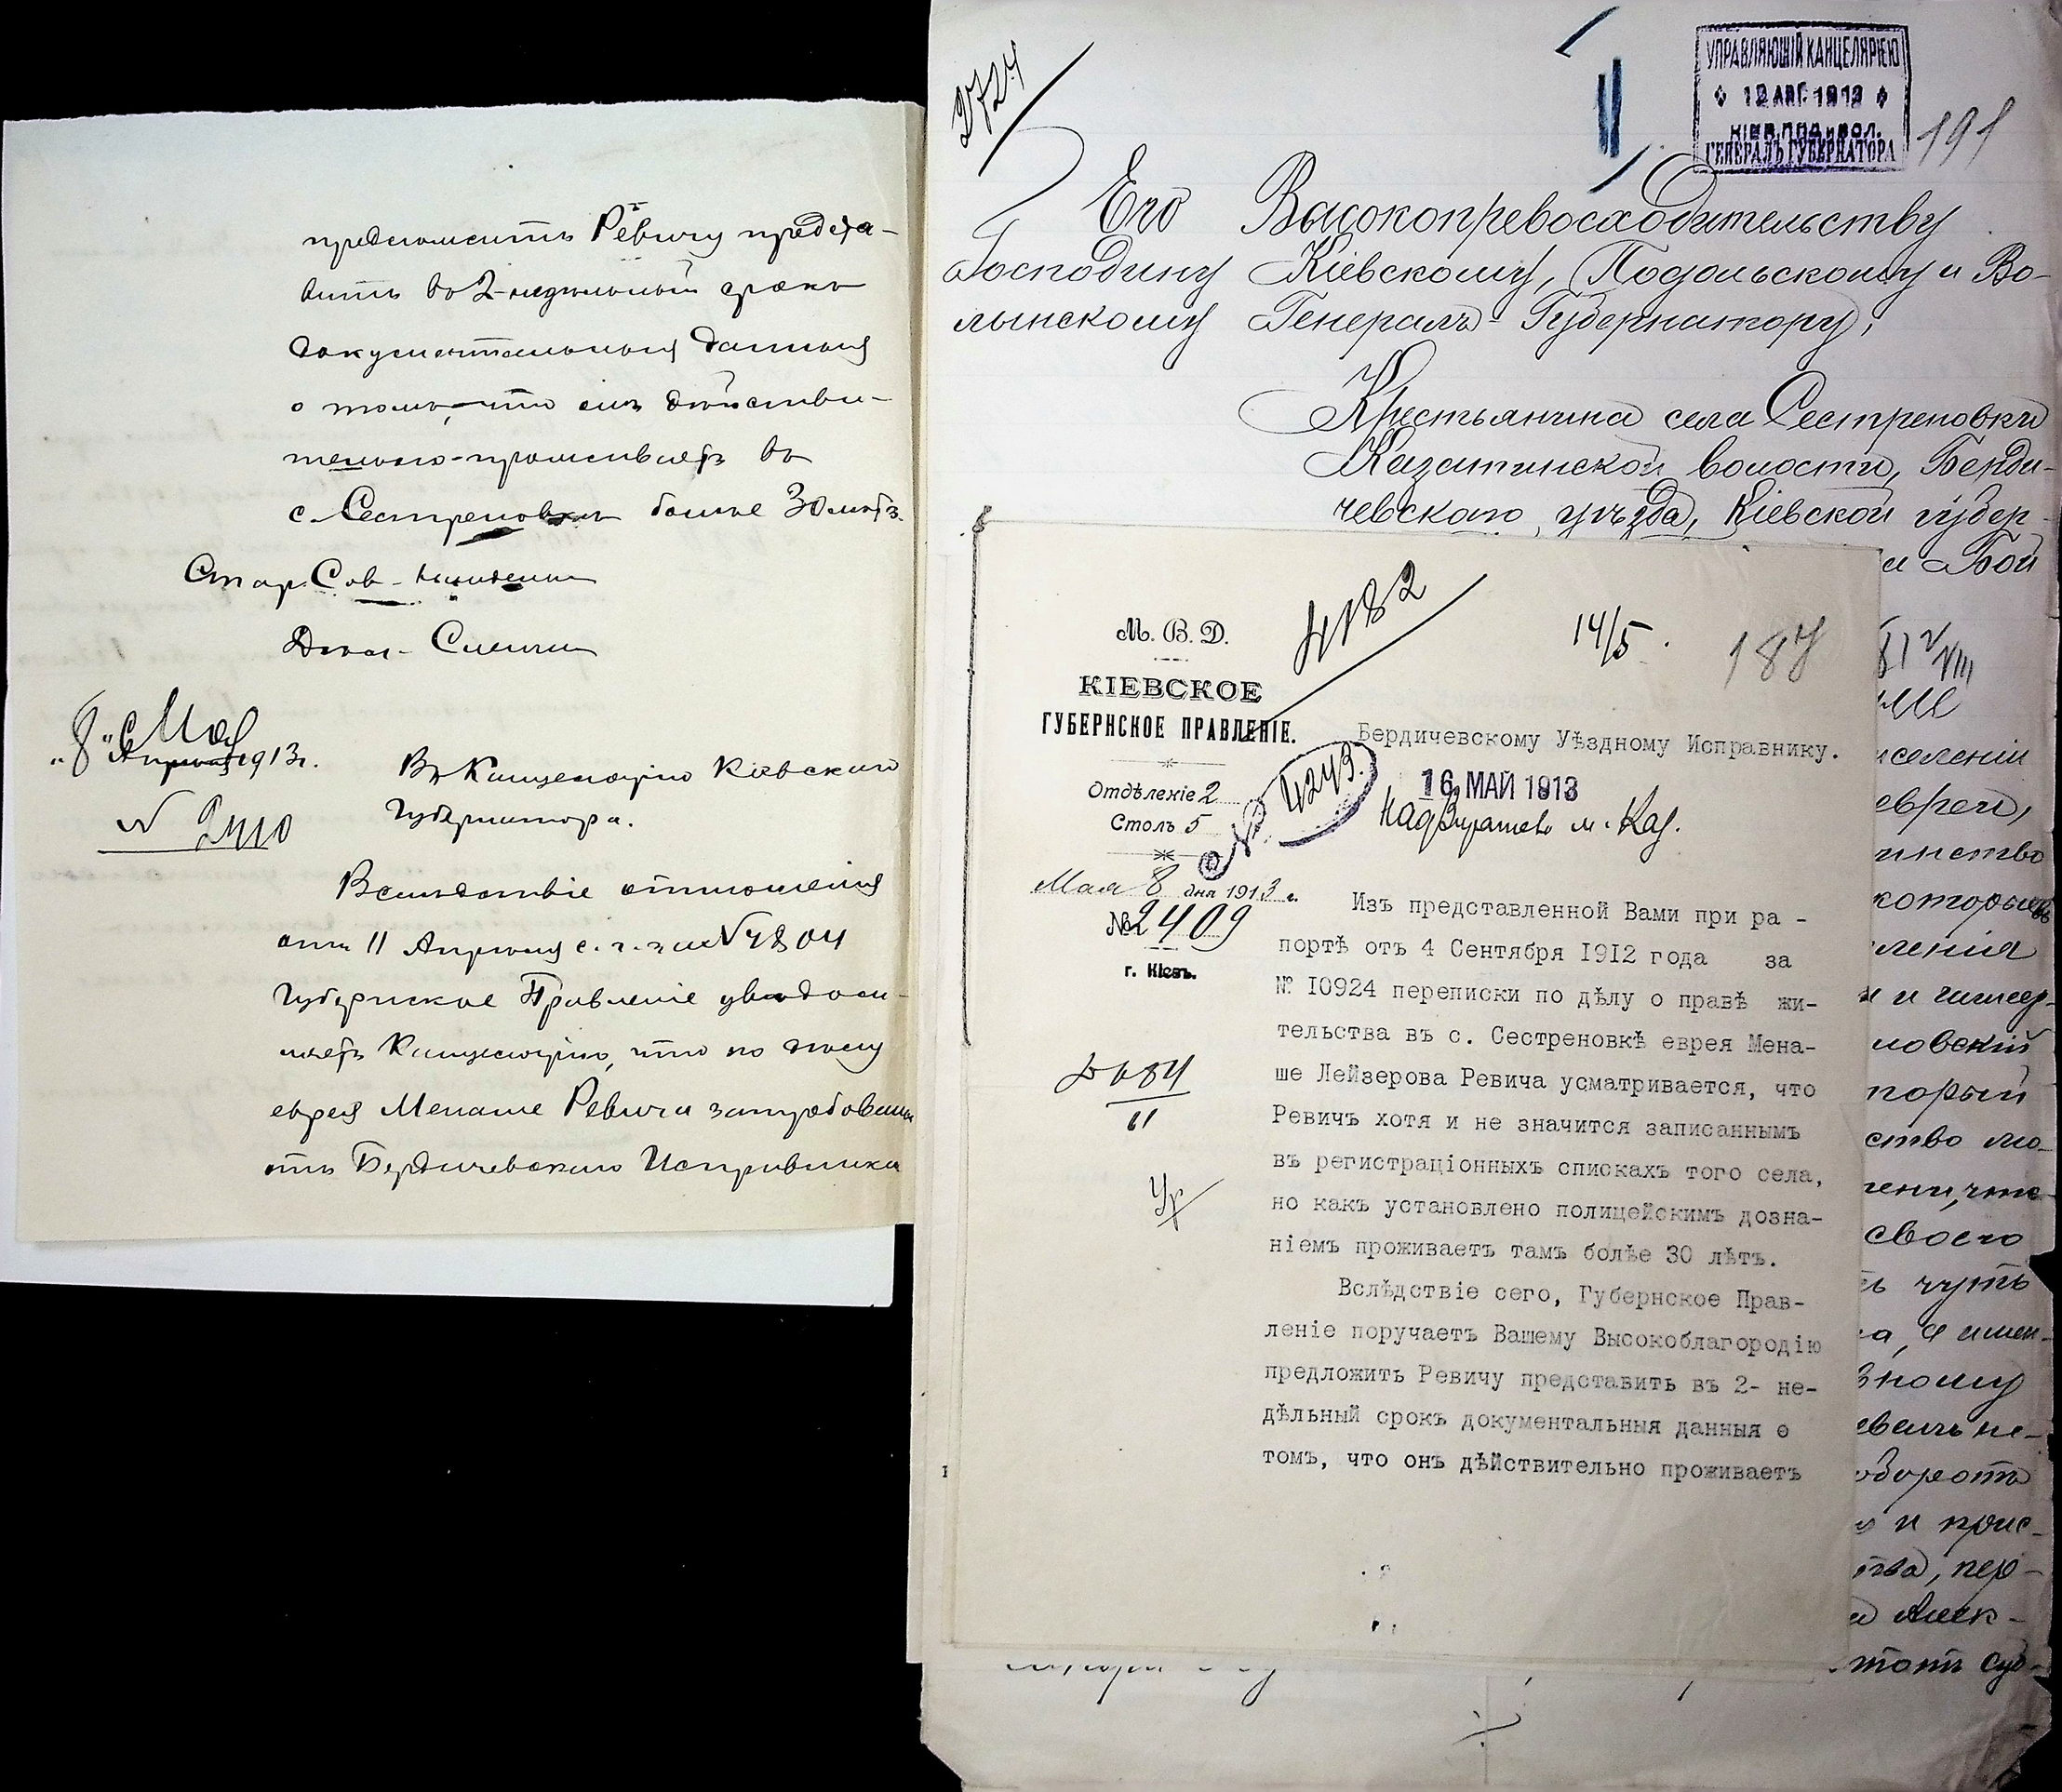 предложить Ревичу предста-
вить въ 2-недѣльный срокъ
документальныя данныя
о томъ, что онъ дѣйстви-
тельно проживаетъ въ
с. Сестреновкѣ болѣе 30 лѣтъ.
Стар. Сов.
"8" Мая
Апрѣля 1913 г.
№ 2410
Въ Канцелярію Кіевскаго
Губернатора.
Вслѣдствіе отношенія
отъ 11 Апрѣля с. г. за №
Губернское Правленіе увѣдом-
ляетъ Канцелярію, что по дѣлу
еврея Менаше Ревича затребованы
отъ Бердичевскаго Исправника
2724
УПРАВЛЯЮЩІЙ КАНЦЕЛЯРІЕЮ
12 АВГ. 1913
КІЕВ. ПОД. и ВОЛ.
ГЕНЕРАЛЪ ГУБЕРНАТОРА
191
Его Высокопревосходительству
Господину Кіевскому, Подольскому и Во-
лынскому Генералъ-Губернатору,
Крестьянина села Сестреновки
Казатинской волости, Берди-
чевскаго уѣзда, Кіевской губер-
Бой
селеніи
евреи,
которыхъ
ленія
ловскій
торый
ство мо-
своего
чуть
зному
оборотъ
и прис-
пер-
Алек-
тотъ
М. В. Д.
КІЕВСКОЕ
ГУБЕРНСКОЕ ПРАВЛЕНІЕ.
Отдѣленіе 2
Столъ 5
Мая 8 дня 1913 г.
№ 2409
г. Кіевъ.
4182
14/5.
187
Бердичевскому Уѣздному Исправнику.
№ 4243.
16 МАЙ 1913
м. Каз.
Изъ представленной Вами при ра -
портѣ отъ 4 Сентября 1912 года за
№ 10924 переписки по дѣлу о правѣ жи-
тельства въ с. Сестреновкѣ еврея Мена-
ше Лейзерова Ревича усматривается, что
Ревичъ хотя и не значится записаннымъ
въ регистраціонныхъ спискахъ того села,
но какъ установлено полицейскимъ дозна-
ніемъ проживаетъ тамъ болѣе 30 лѣтъ.
Вслѣдствіе сего, Губернское Прав-
леніе поручаетъ Вашему Высокоблагородію
предложить Ревичу представить въ 2- не-
дѣльный срокъ документальныя данныя о
томъ, что онъ дѣйствительно проживаетъ